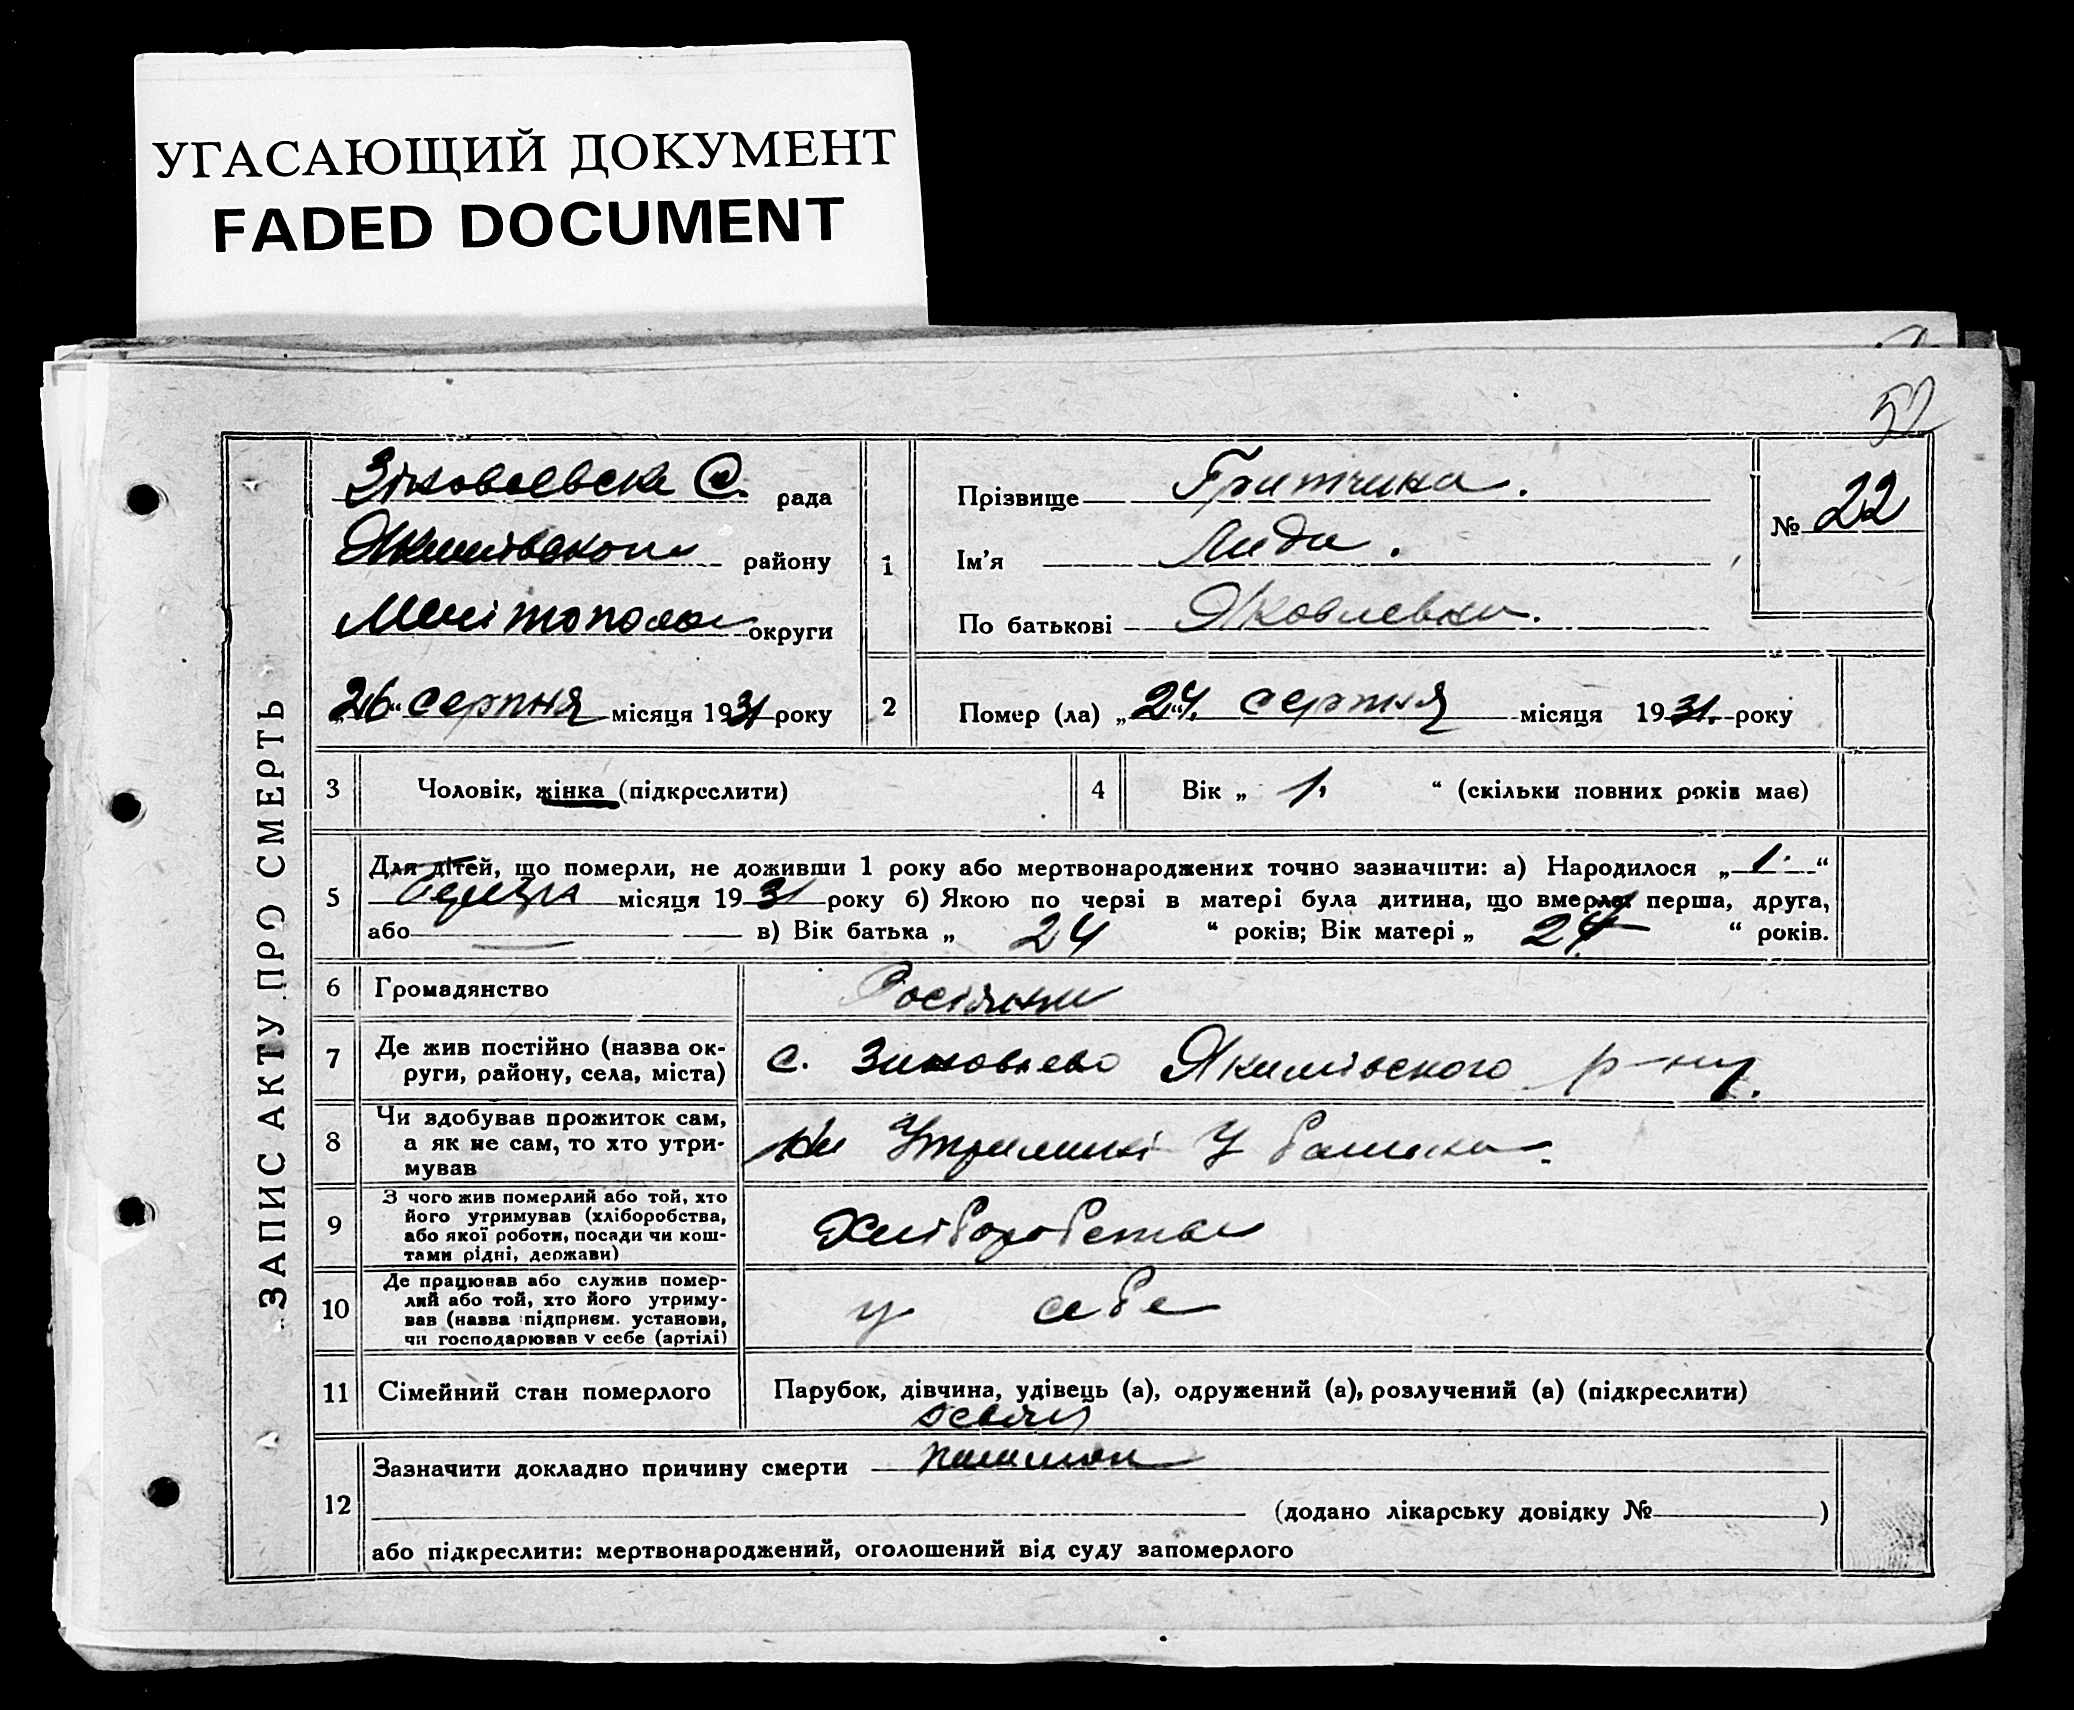 УГАСАЮЩИЙ ДОКУМЕНТ
FADED DOCUMENT
52
ЗАПИС АКТУ ПРО СМЕРТЬ
С. рада
району
округи
„26“ серпня місяця 1931 року
1
Прізвище Гритчина.
Ім'я Лида.
По батькові Яковлевна.
№ 22
2 Помер (ла) „24“ серпня місяця 1931. року
3 Чоловік, жінка (підкреслити)
4 Вік „ 1. “ (скільки повних років має)
5 Для дітей, що померли, не доживши 1 року або мертвонароджених точно зазначити: а) Народилося „ 1 “
місяця 1931 року б) Якою по черзі в матері була дитина, що вмерла: перша, друга,
або в) Вік батька „ 24 “ років; Вік матері „ 24 “ років.
6 Громадянство
7 Де жив постійно (назва округи, району, села, міста) с. Зиновлево Якимівского р-ну.
8 Чи здобував прожиток сам, а як не сам, то хто утримував На Утриманні У
9 З чого жив померлий або той, хто його утримував (хліборобства, або якої роботи, посади чи коштами рідні, держави) Хліборобства
10 Де працював або служив померлий або той, хто його утримував (назва підприєм. установи, чи господарював у себе (артілі) у себе
11 Сімейний стан померлого Парубок, дівчина, удівець (а), одружений (а), розлучений (а) (підкреслити)
12 Зазначити докладно причину смерти
(додано лікарську довідку № )
або підкреслити: мертвонароджений, оголошений від суду запомерлого